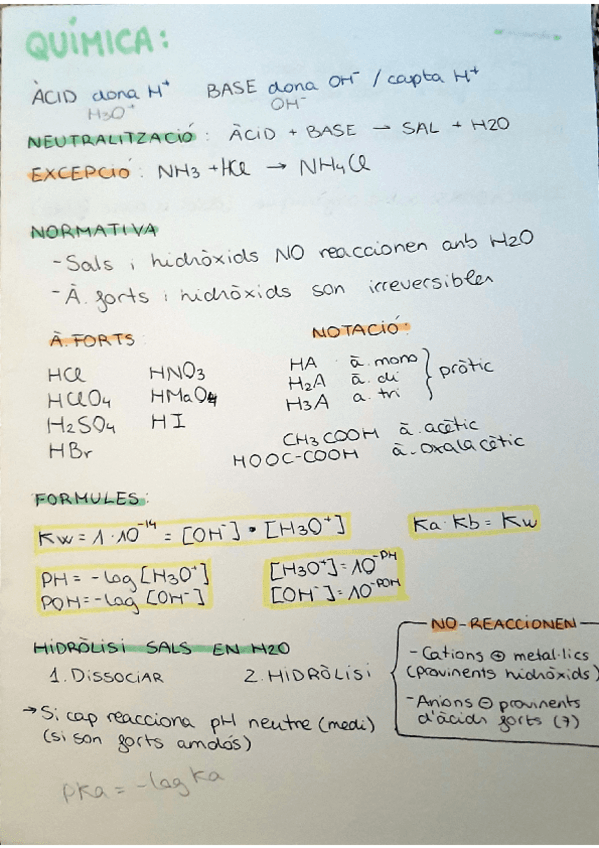 QUÍMICA:
ÀCID dona H⁺ BASE dona OH⁻ / capta H⁺
H₃O⁺ OH⁻
NEUTRALITZACIÓ: ÀCID + BASE → SAL + H2O
EXCEPCIÓ: NH3 + HCl → NH4Cl
NORMATIVA
- Sals i hidròxids NO reaccionen amb H2O
- À. forts i hidròxids son irreversibles
À. FORTS:
HCl HNO3
HClO4 HMnO4
H2SO4 HI
HBr
NOTACIÓ:
HA à. mono
H2A à. di } pròtic
H3A a. tri
CH3COOH à. acètic
HOOC-COOH à. oxalacètic
FORMULES:
Kw = 1·10⁻¹⁴ = [OH⁻] • [H3O⁺] Ka · Kb = Kw
PH = -log [H3O⁺] [H3O⁺] = 10⁻ᴾᴴ
POH = -log [OH⁻] [OH⁻] = 10⁻ᴾᴼᴴ
HIDRÒLISI SALS EN H2O
1. DISSOCIAR 2. HIDRÒLISI
→ Si cap reacciona pH neutre (medi)
(si son forts amdós)
pKa = -log Ka
NO-REACCIONEN
- Cations ⊕ metal·lics
(provinents hidròxids)
- Anions ⊖ provinents
d'àcids forts (7)